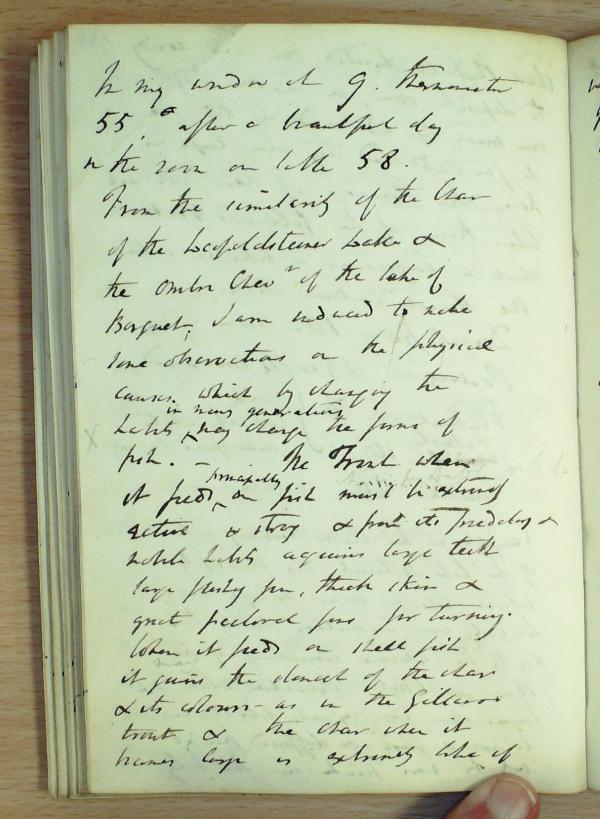 In my window at 9. thermometer
55.° after a beautiful day
in the room on table 58.
From the similarity of the Char
of the Leopoldsteiner Lake &
the Ombre Chev<sup>r</sup> of the lake of
Bourget, I am induced to make
some observations on the physical
causes which by changing the
in many generations
habits may change the forms of
fish. – The Trout when
principally
it feeds on fish must be extremely
active & strong & from its predatory &
mobile habits acquires large teeth
large fleshy fins, thick skin &
great pectoral fins for turning.
When it feeds on shell fish
may
it gains the stomach of the char
& its colours – as in the Gillaroo
trout & the char when it
becomes large is extremely like